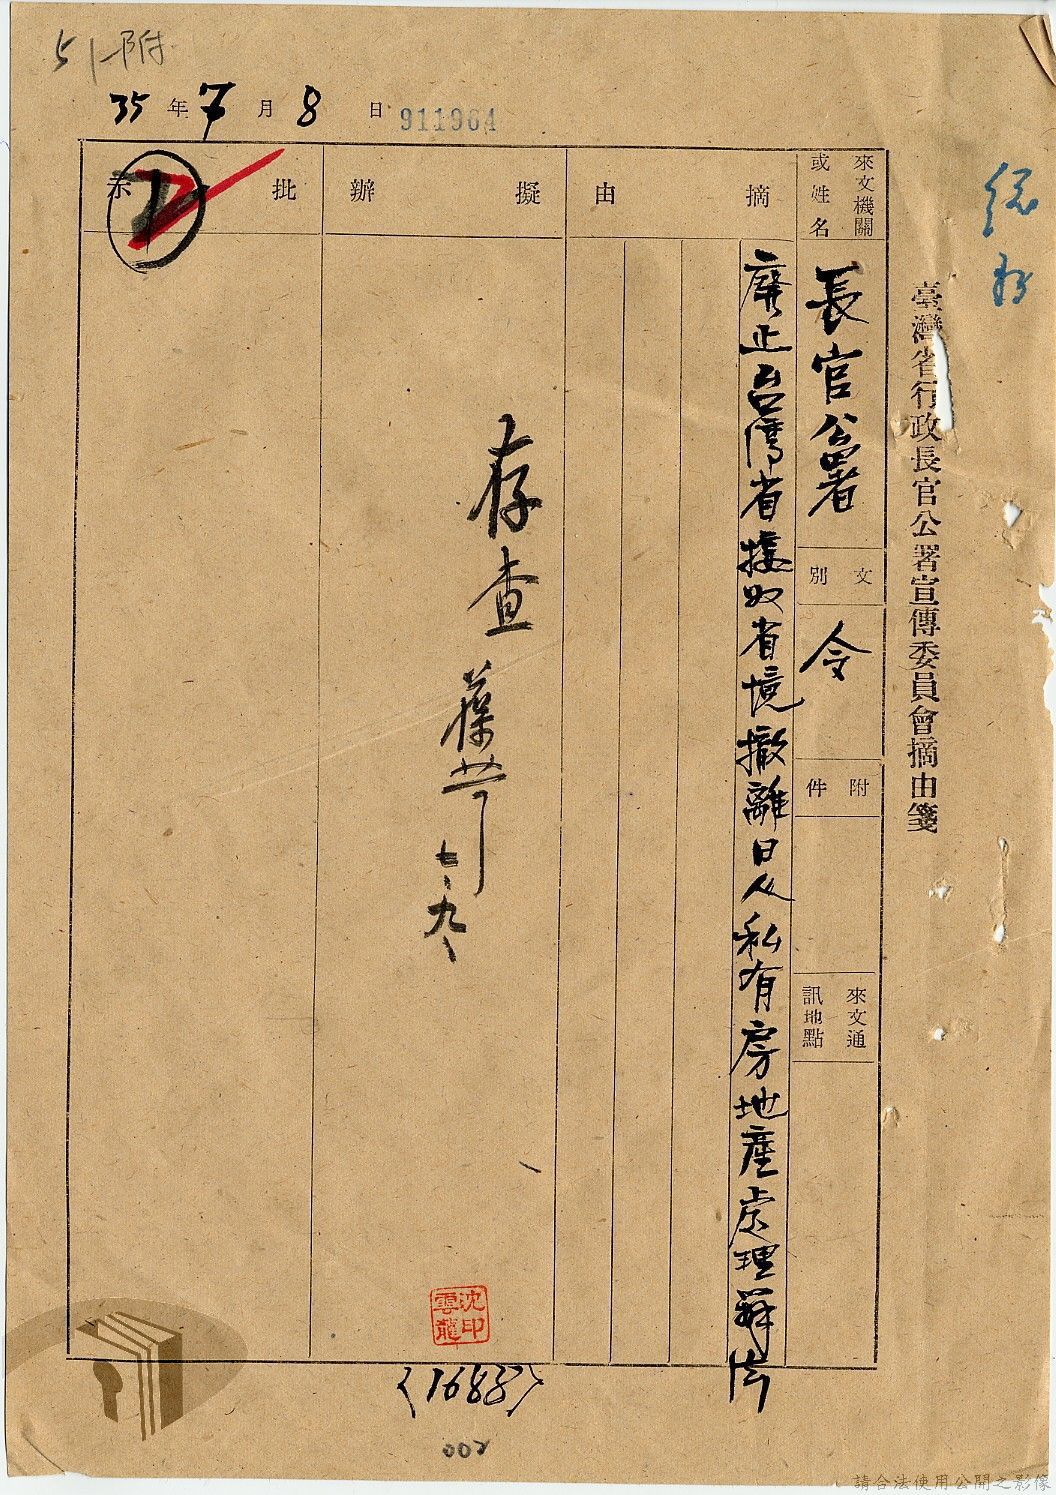 51-附
35年7月8日 911964
臺灣省行政長官公署宣傳委員會摘由箋
來文機關
或姓名
長官公署
文別
令
附件
來文通
訊地點
摘由
廢止台灣省接收省境撤離日人私有房地產處理辦法
擬辦
存查
七、九、
批示
沈印
雲龍
〈1688〉
002
請合法使用公開之影像